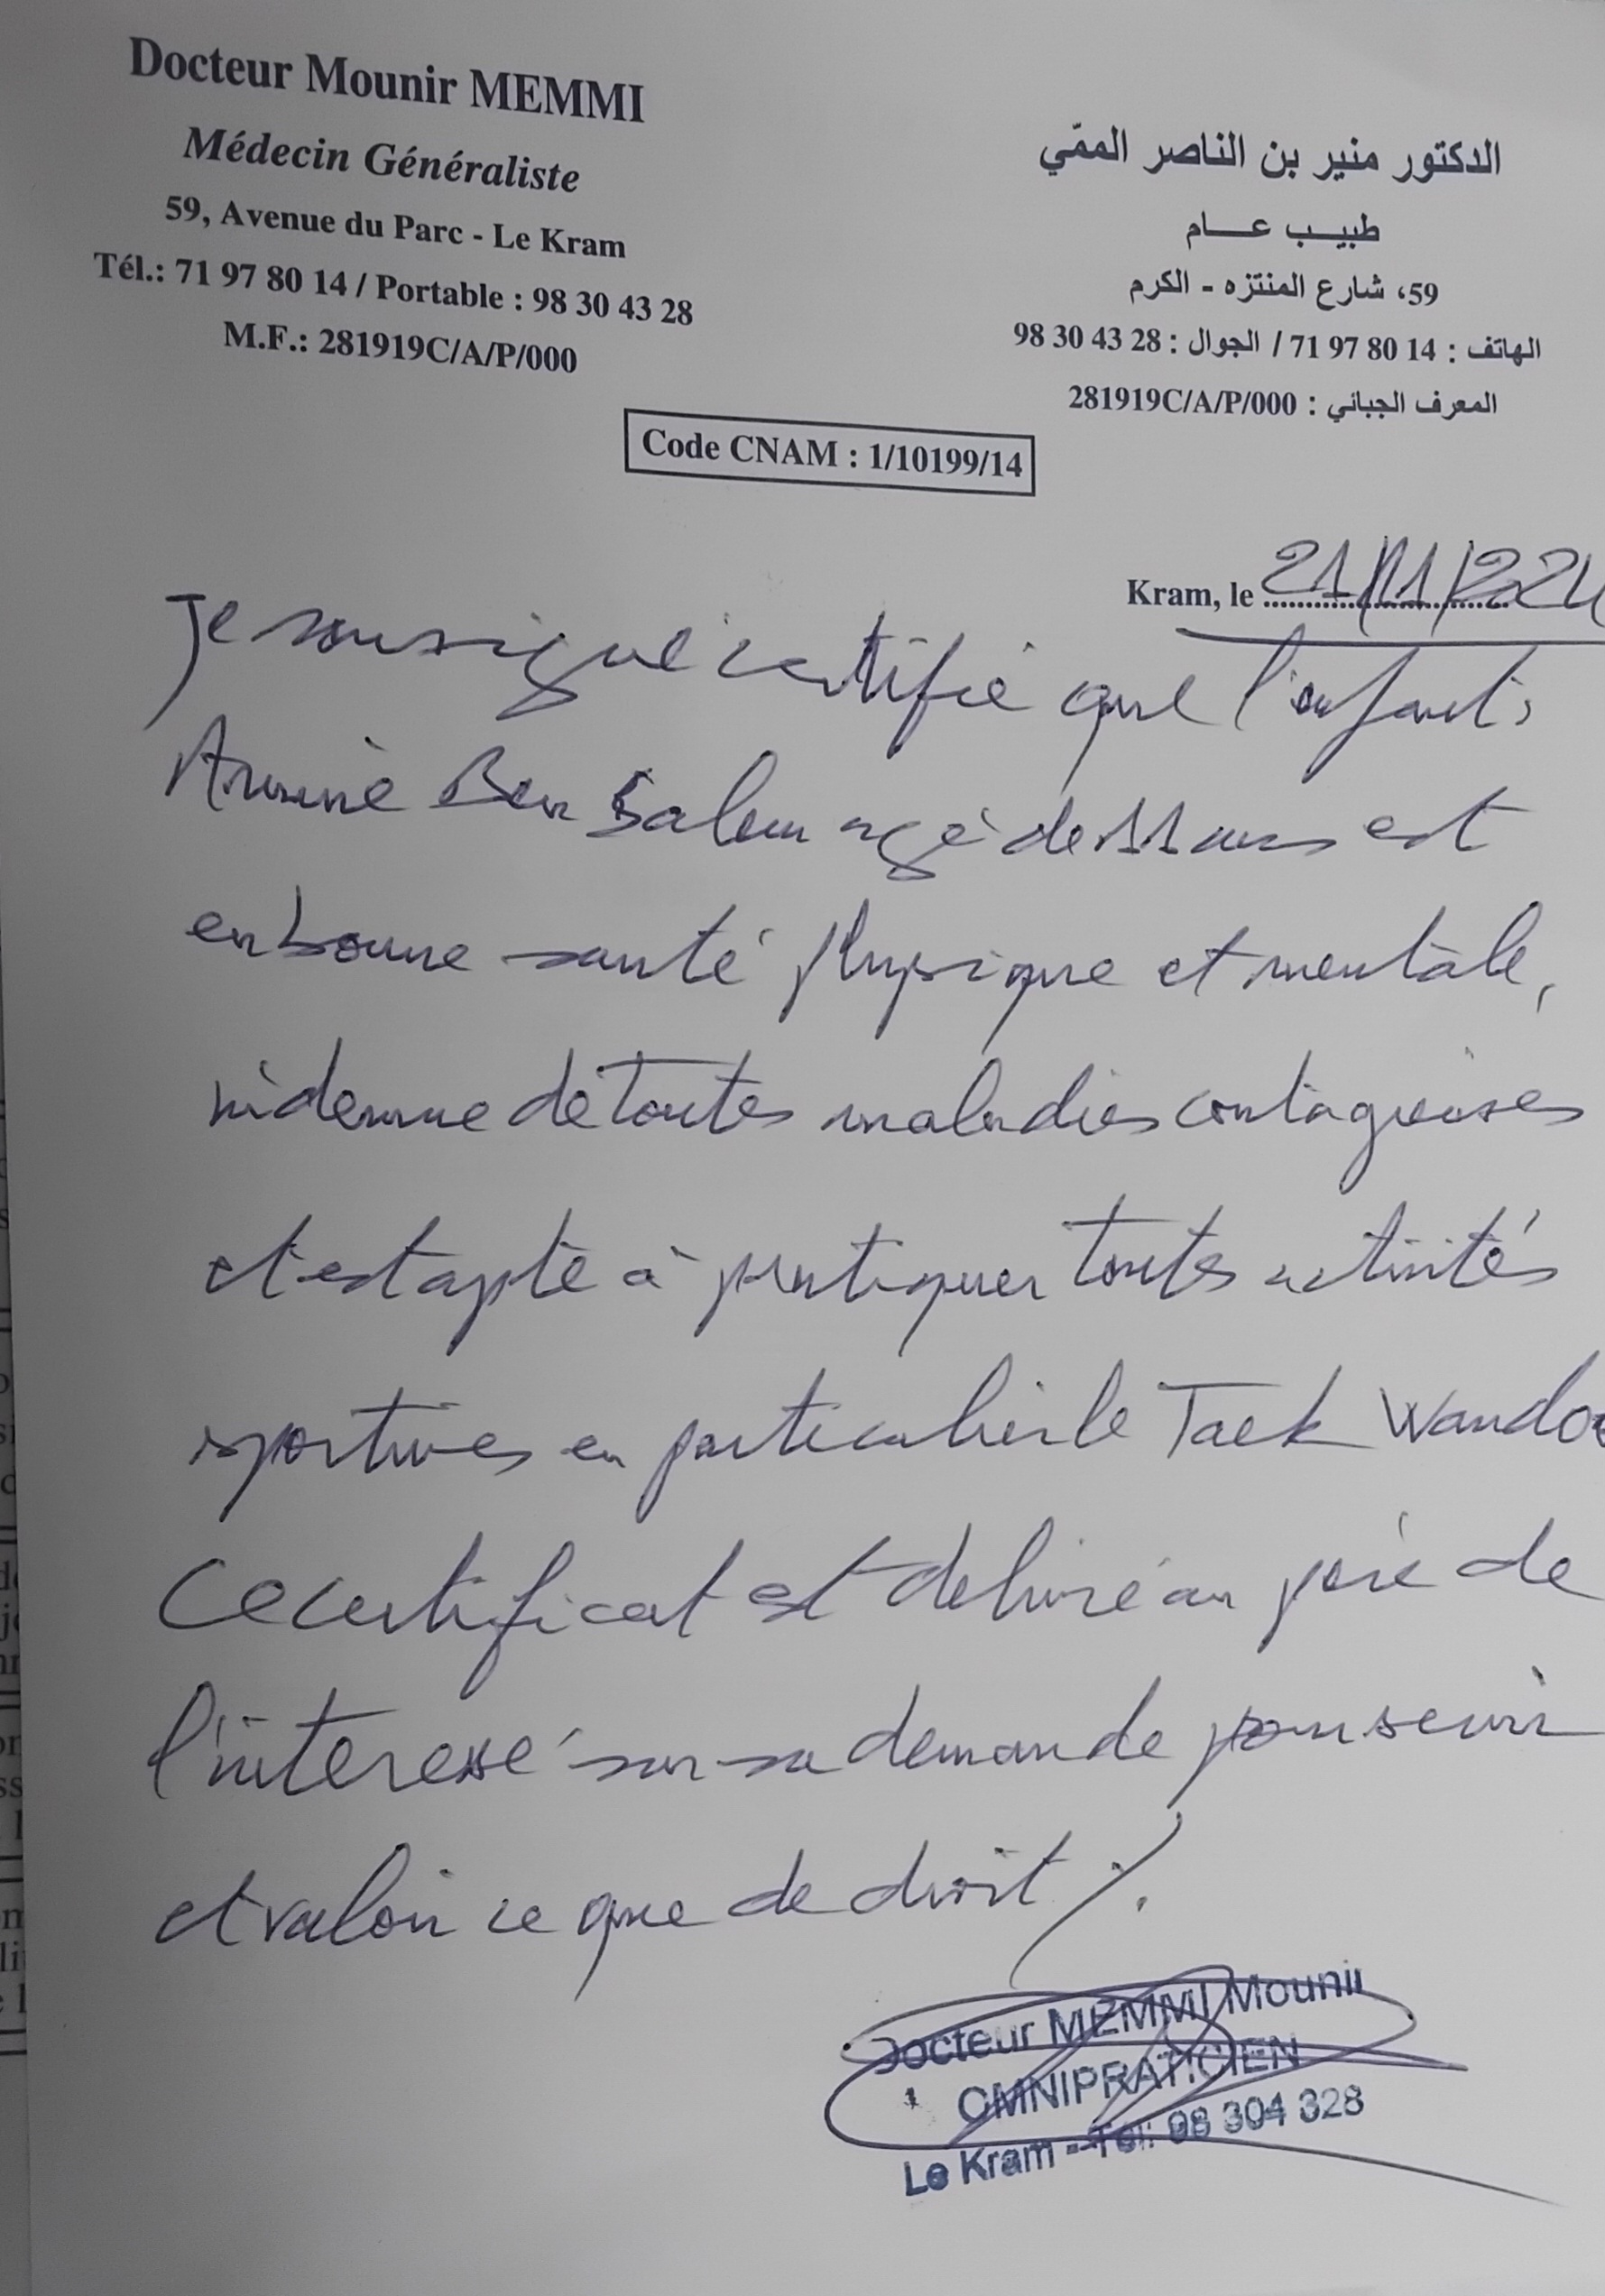 Docteur Mounir MEMMI
Médecin Généraliste
59, Avenue du Parc - Le Kram
Tél.: 71 97 80 14 / Portable : 98 30 43 28
M.F.: 281919C/A/P/000
الدكتور منير بن الناصر الممّي
طبيب عام
59، شارع المنتزه - الكرم
الهاتف : 71 97 80 14 / الجوال : 98 30 43 28
المعرف الجبائي : 281919C/A/P/000
Code CNAM : 1/10199/14
Kram, le 21/11/2024
Je soussigné certifie que l'enfant
Ben Salem agé de 11 ans est
en bonne santé physique et mentale,
indemne de toutes maladies contagieuses
et est apte à pratiquer toutes activités
sportives en particulier le Taek Wando
Ce certificat est delivré au père de
l'interessé sur sa demande pour servir
et valoir ce que de droit ./.
Docteur MEMMI Mounir
OMNIPRATICIEN
Le Kram - Tél: 98 304 328